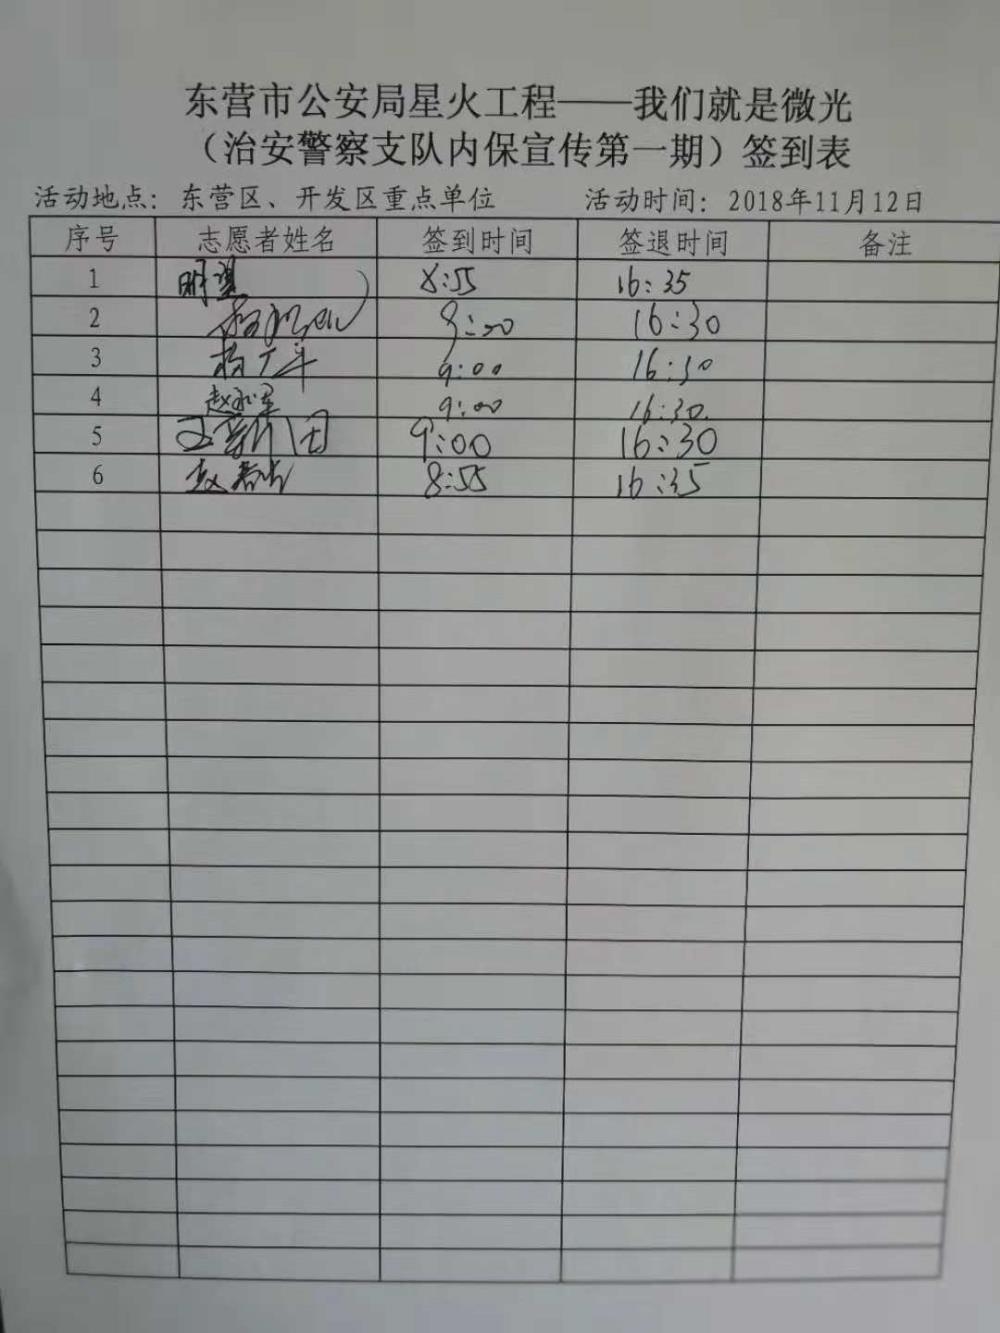 东营市公安局星火工程——我们就是微光
（治安警察支队内保宣传第一期）签到表
活动地点：东营区、开发区重点单位 活动时间：2018年11月12日
序号 志愿者姓名 签到时间 签退时间 备注
1 8:55 16:35
2 9:00 16:30
3 9:00 16:30
4 9:00 16:30
5 9:00 16:30
6 8:55 16:35